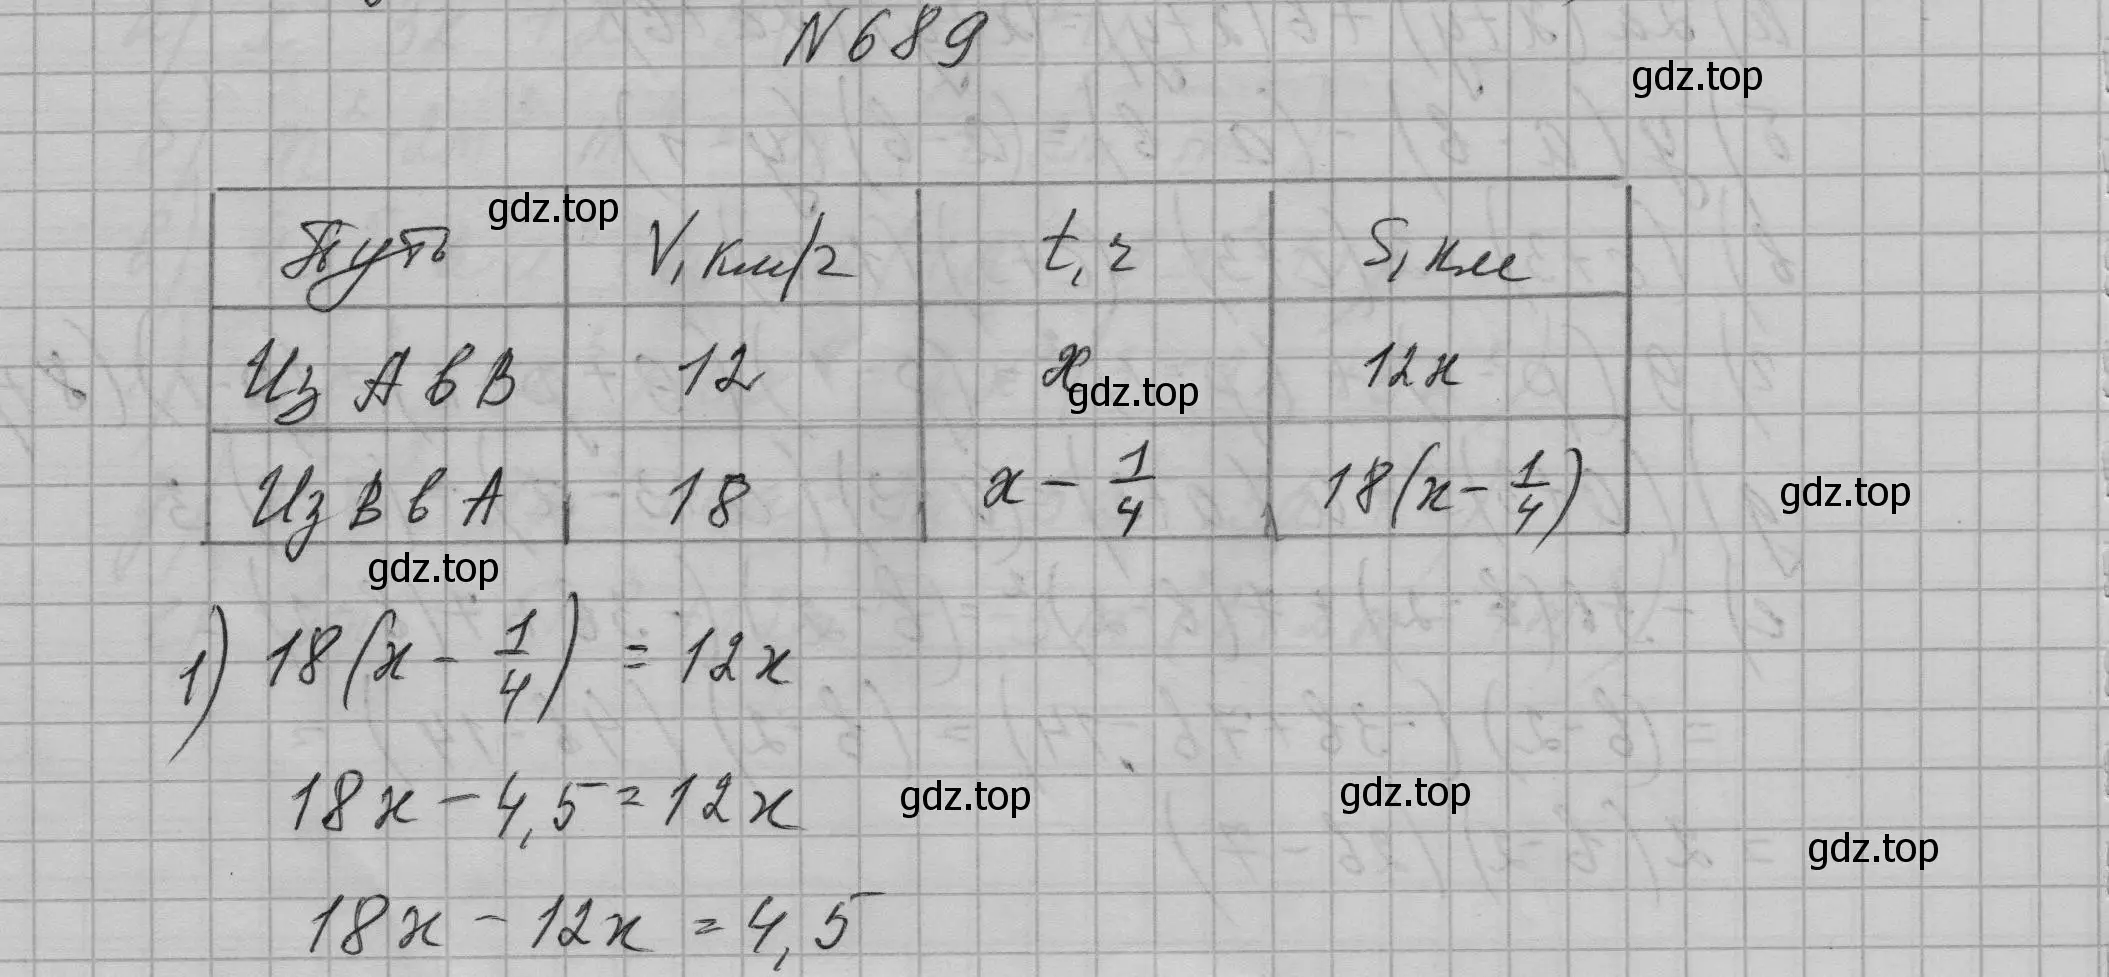 N 689
gdz.top
gdz.top
Путь V, км/ч t, ч S, км
Из А в В 12 x 12x
gdz.top
Из В в А 18 x - 1/4 18(x - 1/4)
gdz.top
gdz.top
1) 18(x - 1/4) = 12x
18x - 4,5 = 12x
gdz.top
gdz.top
gdz.top
18x - 12x = 4,5